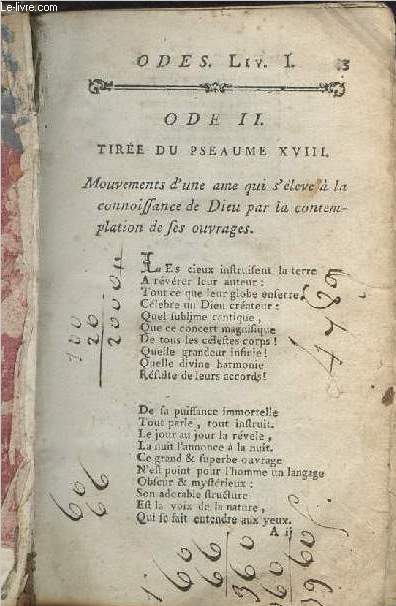 le-livre.com
ODES. LIV. I. 3
ODE II.
TIRÉE DU PSEAUME XVIII.
Mouvements d'une ame qui s'éleve à la
connoiſſance de Dieu par la contem-
plation de ſes ouvrages.
LES cieux inſtruiſent la terre
A révérer leur auteur :
Tout ce que leur globe enſerre
Célebre un Dieu créateur :
Quel ſublime cantique,
Que ce concert magnifique
De tous les céleſtes corps !
Quelle grandeur infinie !
Quelle divine harmonie
Réſulte de leurs accords !
De ſa puiſſance immortelle
Tout parle, tout inſtruit.
Le jour au jour la révele,
La nuit l'annonce à la nuit.
Ce grand & ſuperbe ouvrage
N'eſt point pour l'homme un langage
Obſcur & myſtérieux :
Son adorable ſtructure
Eſt la voix de la nature,
Qui ſe fait entendre aux yeux.
A ij
100
20
60
66
160
66
360